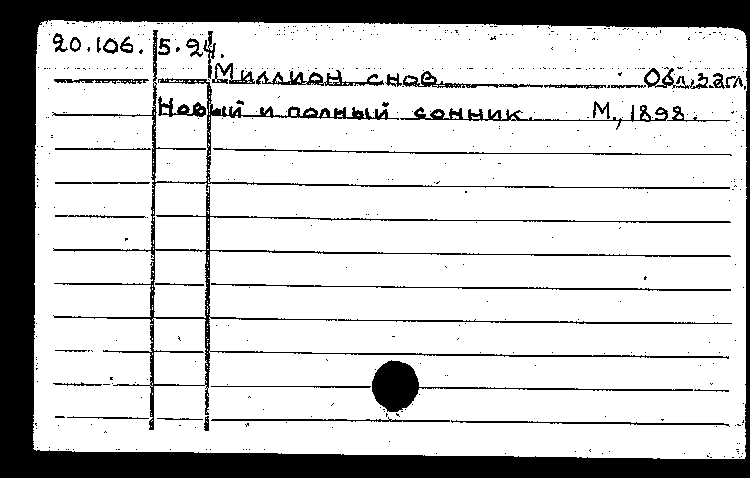 20.106.5.24.
Миллион снов. Обл.загл.
Новый и полный сонник. М., 1898.